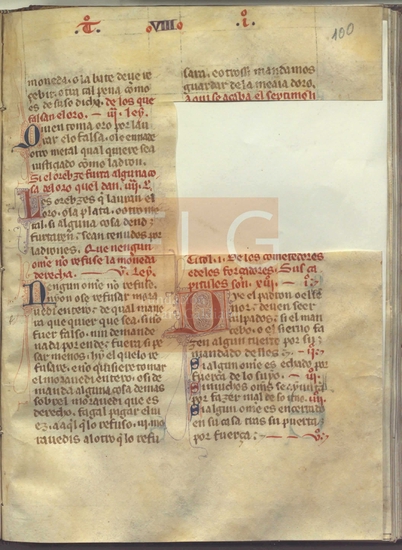 T VIII I
100
moneda, o la bate deve re
cebir otra tal pena como
es de suso dicho. de los que
falsan el oro. — iij. ley.
Quien toma oro por lau
rar e lo falsa, o le ennade
otro metal qual quiere sea
iustigado como ladron.
Si el orebze furta alguna co
sa del oro quel dan. iiij. l.
Los orebzes que lauran el
oro, o la plata, o otro me
tal, si alguna cosa dend
furtaren, sean tenudos por
ladrones. Que nengun
ome non refuse la moneda
derecha. — v. ley.
Nengun ome no refuse
non ose refusar mora
uedi entero, de qual mane
ra que quier que sea, si no
fuer falso, ni demande
nada por ende, fuera si pe
sar menos. Hy el que lo re
fusare, e no quisiere tomar
el moravedi entero, e si de
manda alguna cosa de mas
sobrel moravedi que es
derecho, fagal pagar el iu
ez, a aquel que lo refuso, iij. mo
ravedis al otro que lo refu
sara, e otrossi mandamos
guardar de la meaia doro.
Aqui se acaba el septimo li
Titol. i. De los cometedores
e de los forzadores. Sus ca
pitules son. xiij. — i.
Que el padron o el se
nor deven seer
culpados, si el man
cebo, o el siervo fa
zen algun tuerto por su
mandado dellos. — ij.
Si algun ome es echado por
fuerza de lo suyo. — iij.
Si muchos omes se aiuntan
por fazer mal de so uno. iiij.
Si algun ome es encerrado
en su casa tras su puerta
por fuerza. — v.
FLG